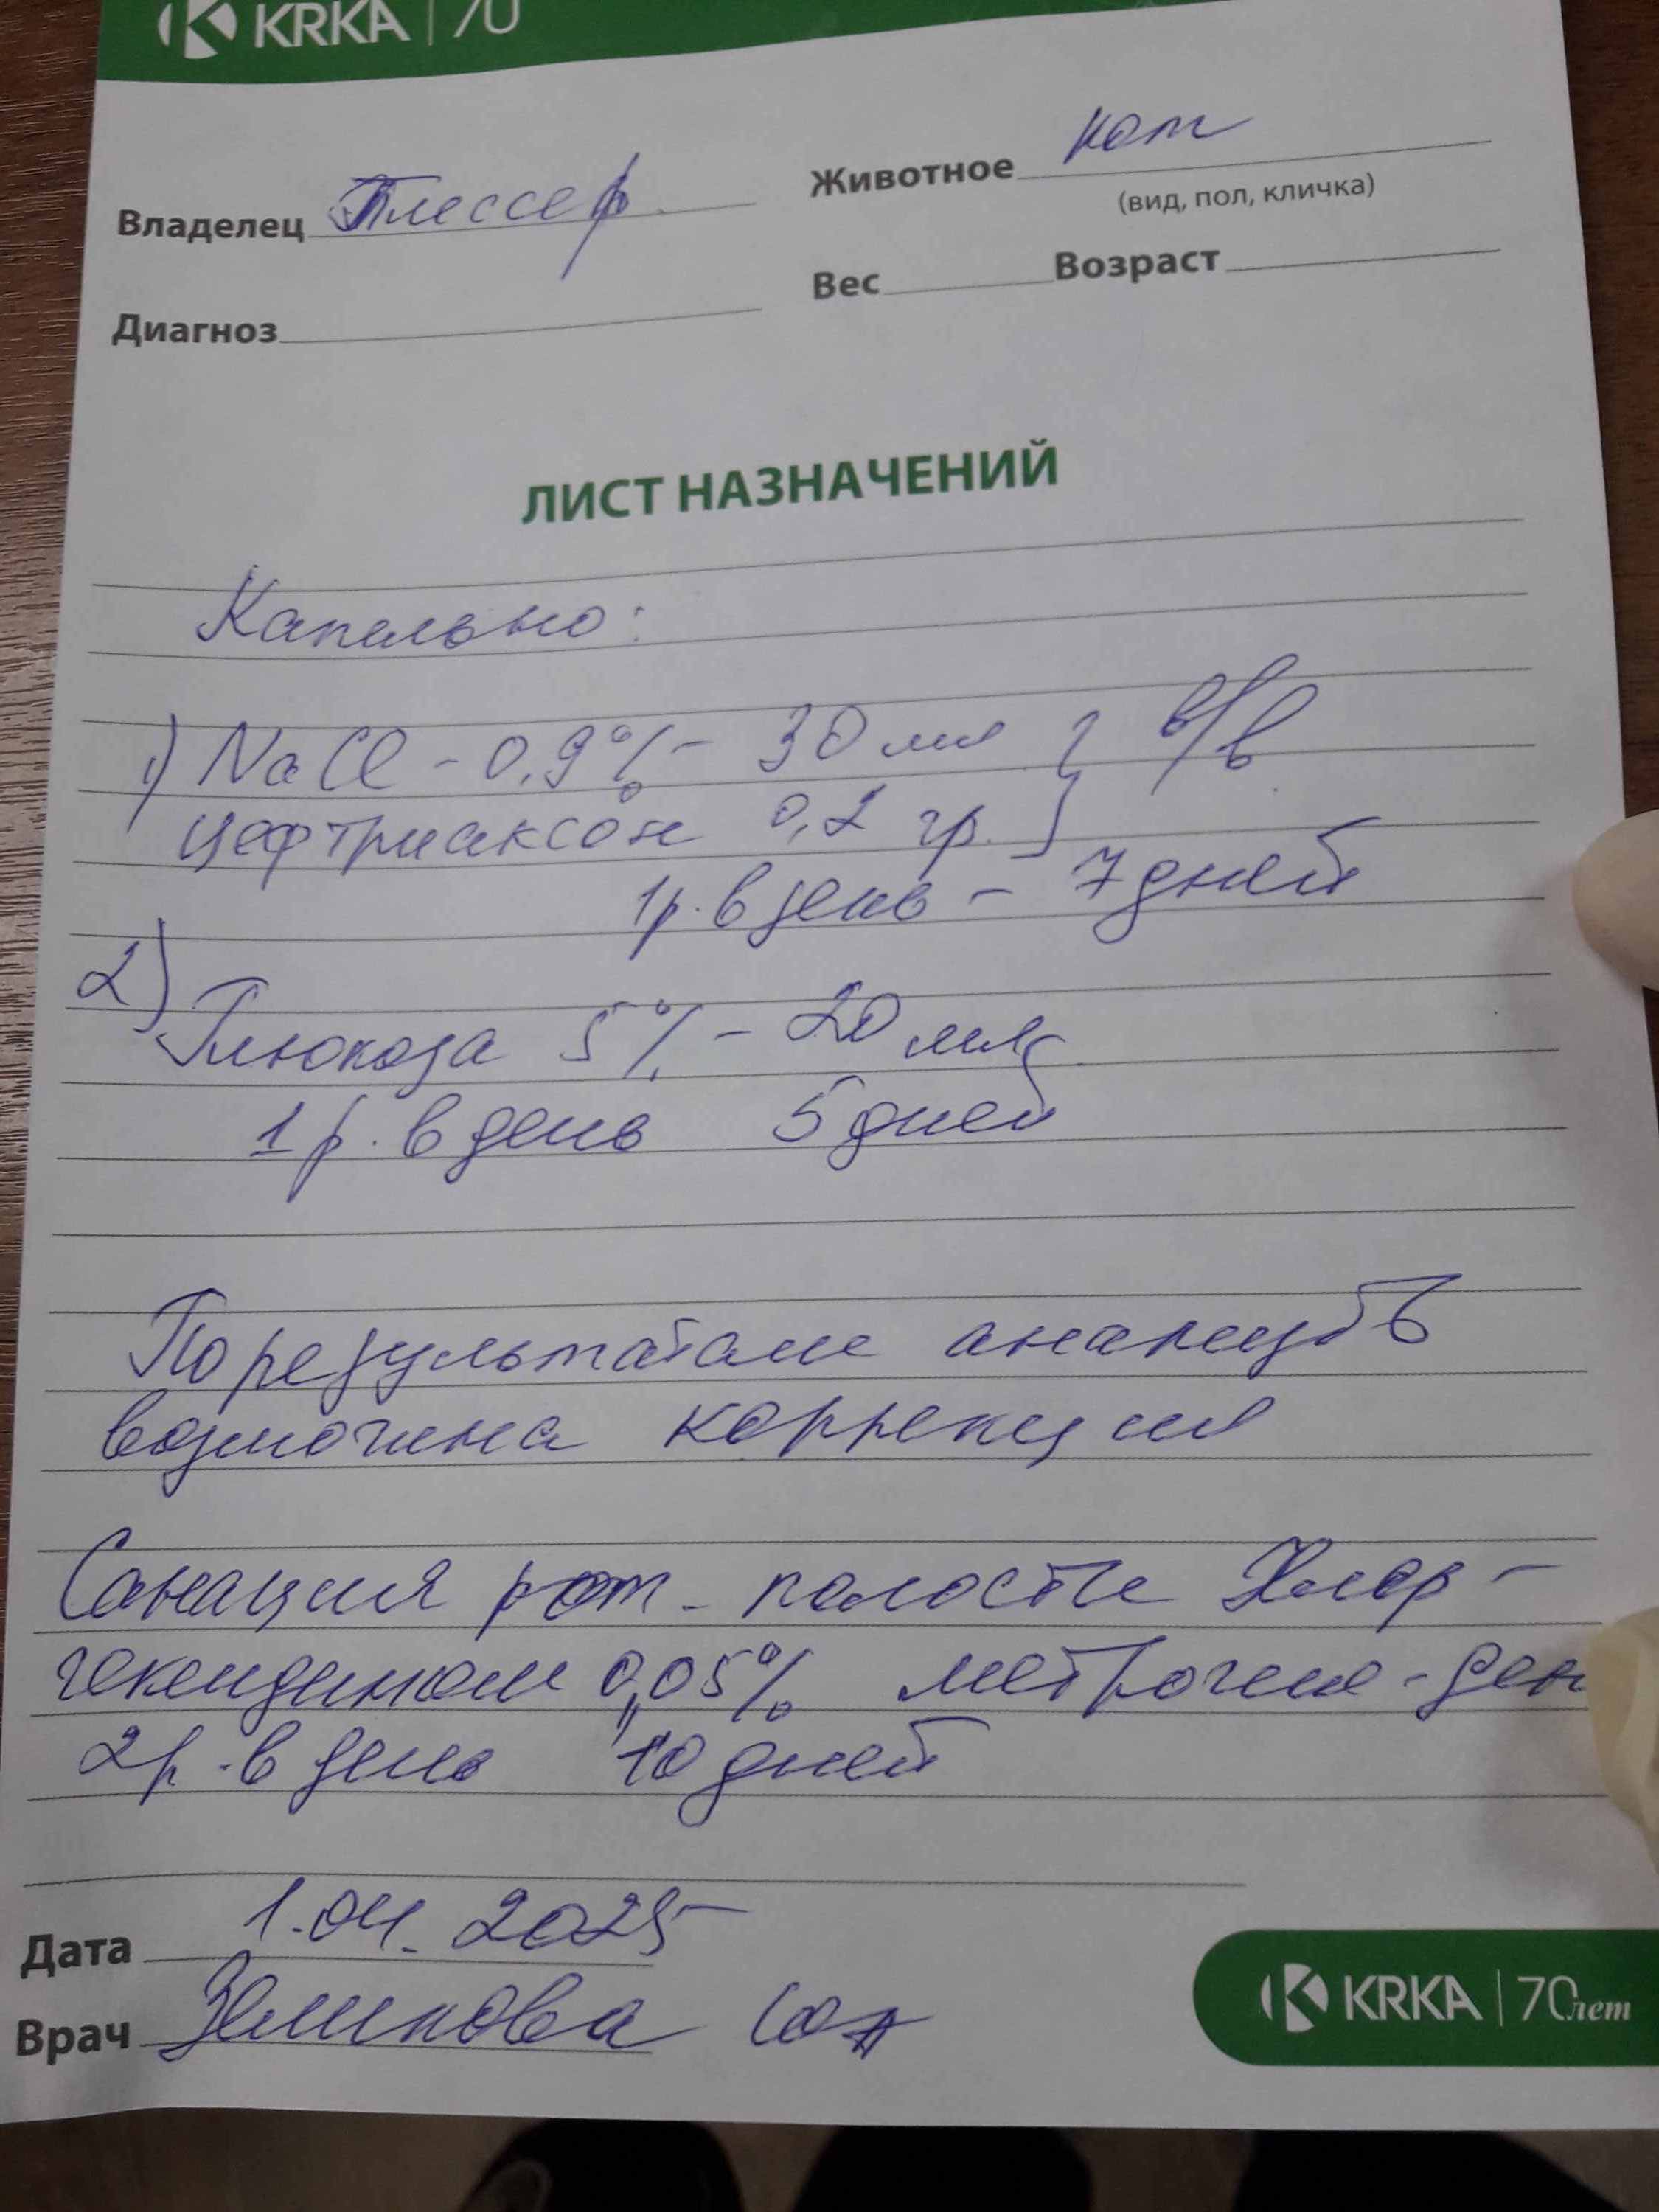 KRKA | 70
Владелец Плессер Животное кот
(вид, пол, кличка)
Диагноз Вес Возраст
ЛИСТ НАЗНАЧЕНИЙ
Капельно:
1) NaCl - 0,9% - 30 мл } в/в
цефтриаксон 0,2 гр.
1 р. в день - 7 дней
2) Глюкоза 5% - 20 мл
1 р. в день 5 дней
По результатам анализов
возможна коррекция
Санация рот. полости Хлор-
гексидином 0,05% метрогил-ден
2 р. в день 10 дней
Дата 1.04.2025
Врач
KRKA | 70 лет